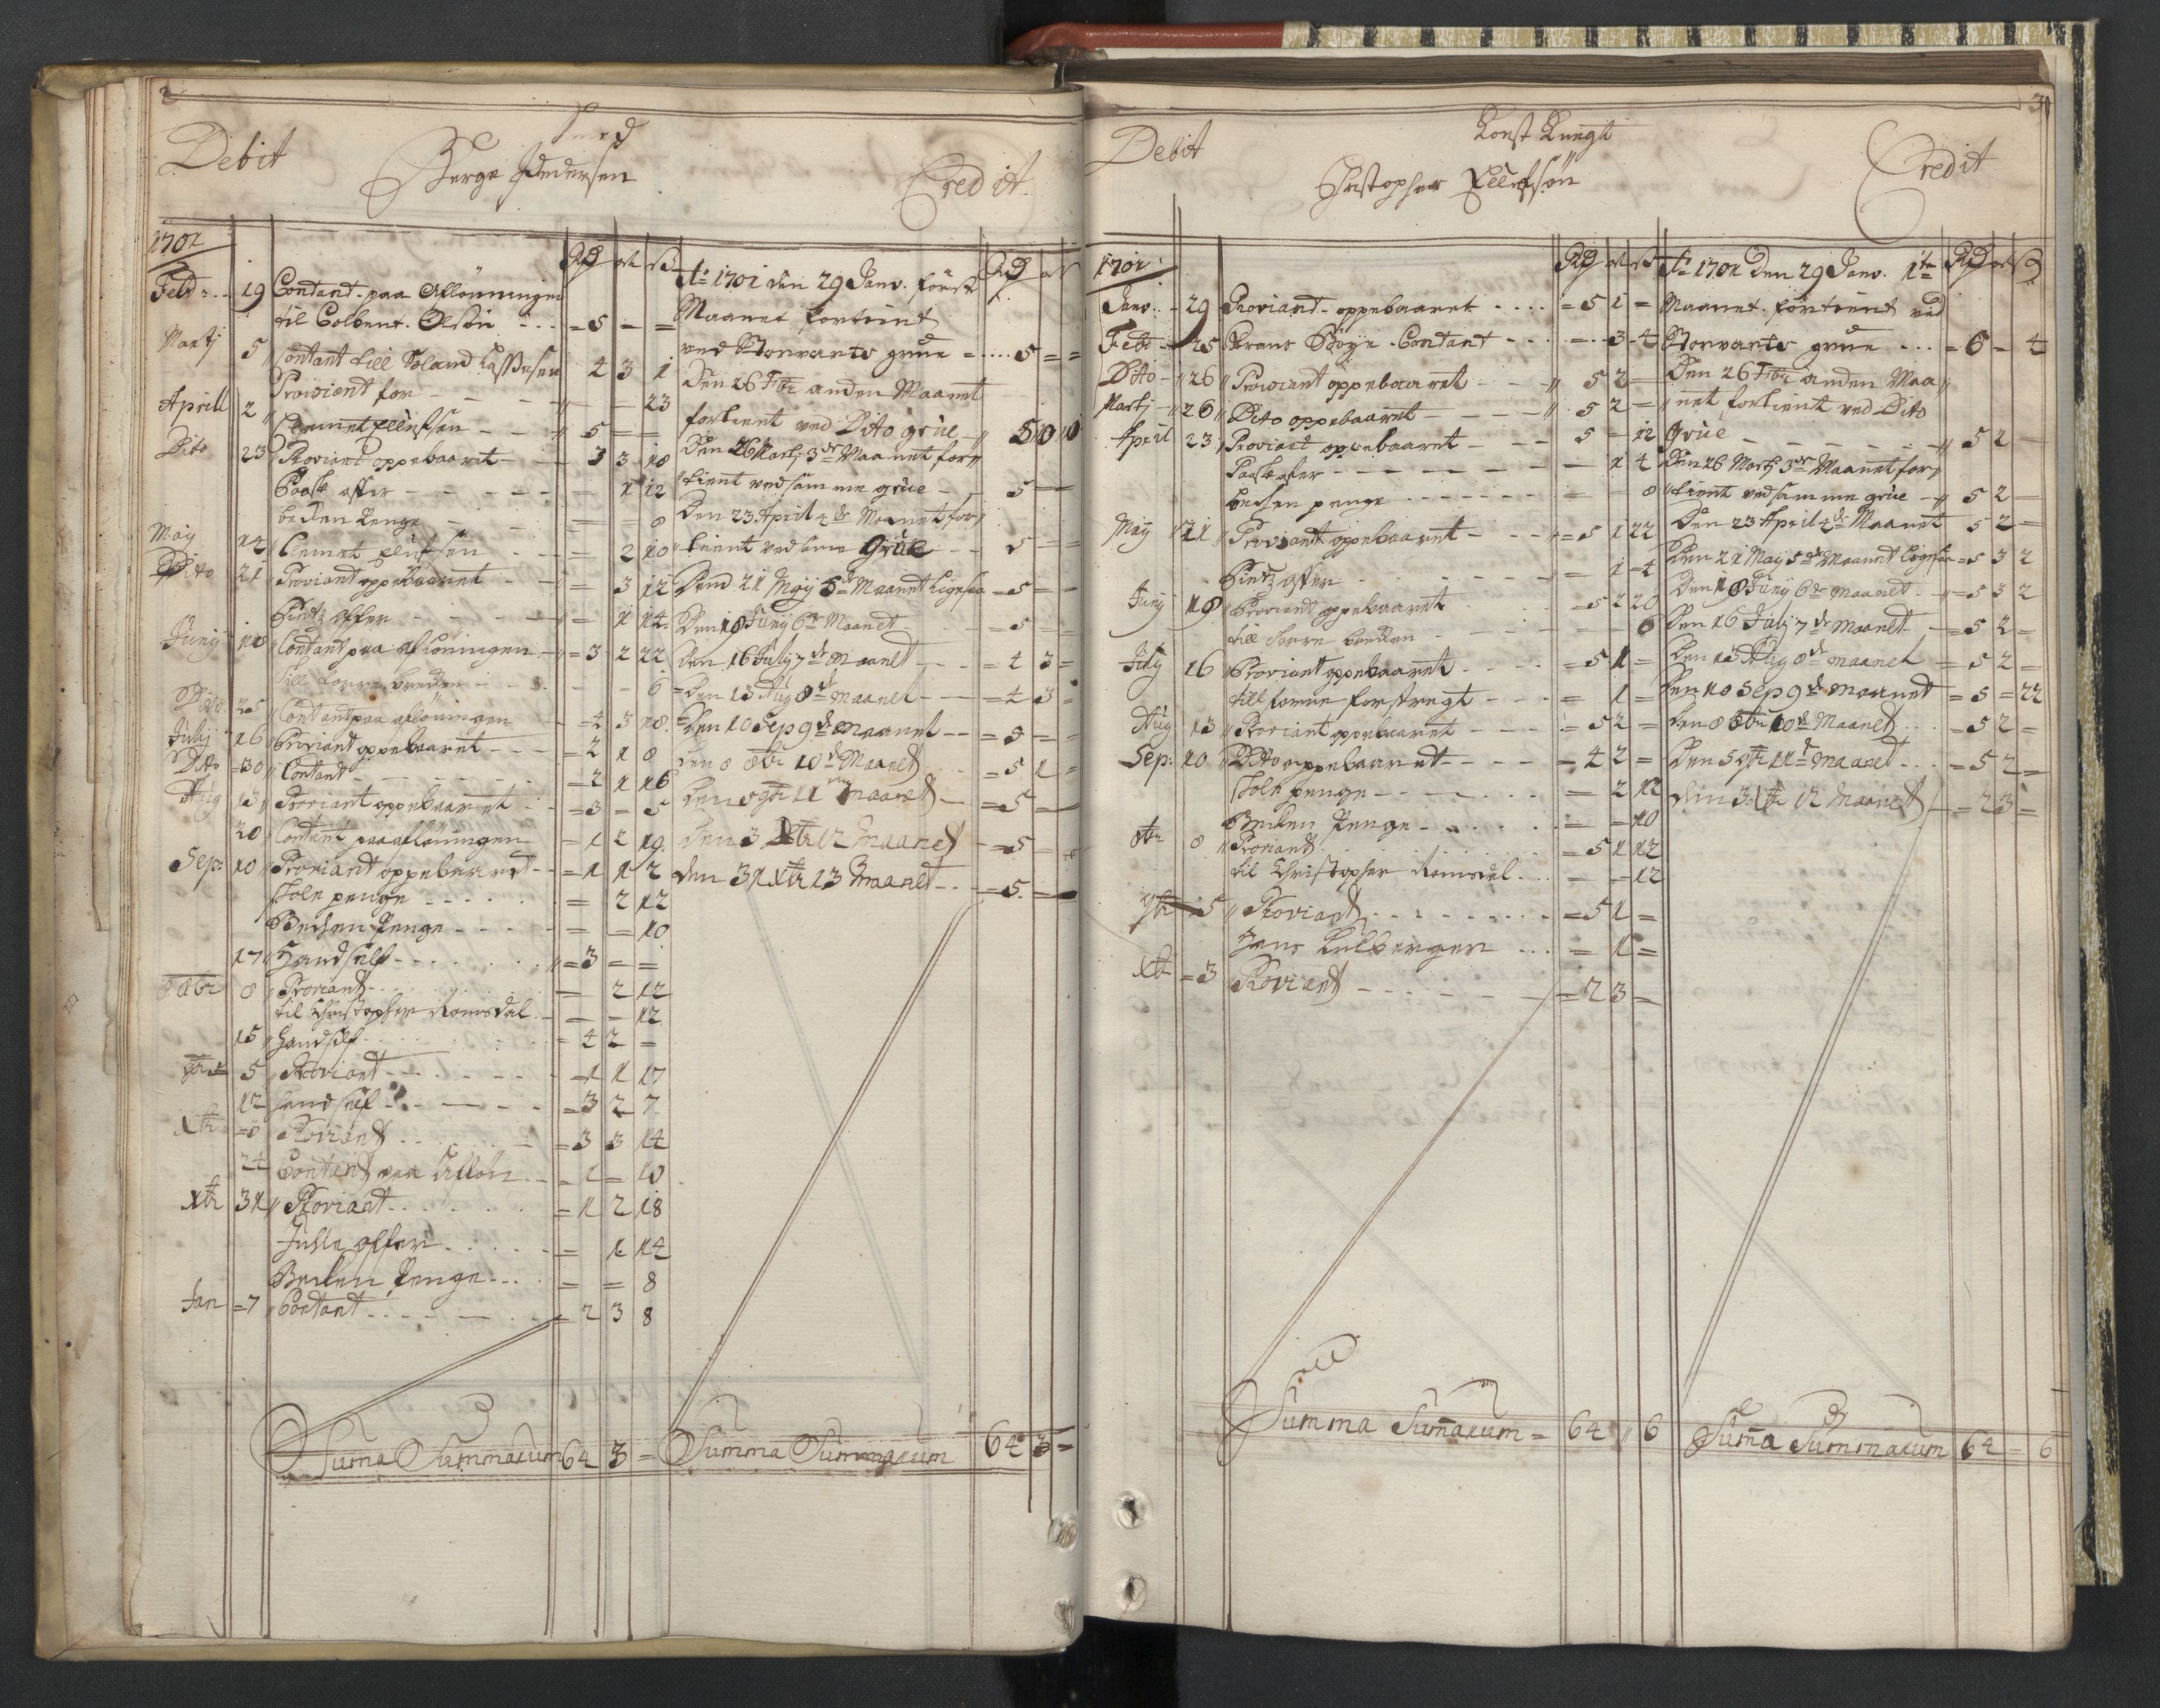 2
Debit
Smed
Berge Pedersen
Credit
1701
Rd ort s
Feb 19 Contant paa Aflönningen
til Colbent Olsen - 5 - =
Martj 5 Contant till Roland 4 3 1
Proviant for - - 23
Aprill 2 Clemet Ellefsen 5 - -
Dito 23 Proviant oppebaaret 3 3 18
Paask offer - 1 12
becken Penge - - 8
May 14 Clemet Ellefsen = 2 10
Dito 21 Proviant oppebaaret = 3 12
Pintz offer = 1 14
Junij 18 Contant paa aflöningen = 3 2 22
till torre - - 6
Dito 25 Contant paa aflöningen = 4 3 18
Julij 16 Proviant oppebaaret = 2 1 8
Dito 30 Contant = 2 1 16
Aug 13 Proviant oppebaaret = 3 - 5
20 Contant paa aflöningen = 1 2 19
Sep: 10 Proviant oppebaaret = 1 1 2
stole penge = 2 12
Becken Penge = - 10
17 Handself = 3 = =
8br 8 Proviant = 2 12
til Christopher Romsdal - - 12
15 Handself 4 2 =
9br 5 Proviant = 1 1 17
12 handself = 3 2 7
Xbr = 3 Proviant = 3 3 14
24 Contant paa Afløn = 1 = 10
Xbr 31 Proviant = 1 2 18
Julle offer = 1 14
Becken Penge = = 8
Jan = 7 Contant = 2 3 8
Suma Summarum 64 3 =
Rd ort
Ao 1701 den 29 Janv. förste
Maanet fortient
ved Storvarts grue 5 = =
Den 26 Febr anden Maanet
fortient ved Dito grue 5 0 0
Den 26 Martj 3de Maanet for
tient ved samme grue 5 - -
Den 23 April 4de Maanet for
tient ved same Grue 5 = =
Dend 21 Maij 5te Maanet ligesaa = 5 = -
Den 18 Junij 6te Maanet 5 =
Den 16 Julij 7de Maanet = 4 3 =
Den 13 Aug 8de Maanet = 4 3 =
Den 10 Sep 9de Maanet = 5 - -
Den 8 8br 10de Maanet = 5 1 =
Den 5 9br 11te Maanet = 5 =
Den 3 Xbr 12 Maanet = 5 -
den 31 Xbr 13 Maanet = 5 = -
Summa Summarum 64 3 =
3
Debit
Konst Knegt
Christopher Ellefsøn
Credit
1701
Rd ort s
Janv: 29 Proviant oppebaaret = 5 1 =
Feb 25 Frans Böye Contant - 3 4
Dito 26 Proviant oppebaaret 5 2 =
Martj 26 Dito oppebaaret 5 2 =
April 23 Proviant oppebaaret 5 - 12
Paask offer - 1 4
becken penge = - 8
May 21 Proviant oppebaaret = 5 1 22
Pintz offer = 1 4
Junij 18 Proviant oppebaaret = 5 2 20
till torre - - 6
Julij 16 Proviant oppebaaret = 5 1 =
till = 1 =
Aug 13 Proviant oppebaaret = 5 2 =
Sep: 10 Dito oppebaaret = 4 2 =
stole penge = 2 12
Becken Penge = - 10
8br 8 Proviant = 5 1 12
til Christopher Romsdal - - 12
9br 5 Proviant = 5 1 =
Hans = 1 =
Xbr = 3 Proviant = 2 3 =
Summa Sumarum = 64 6
Ao 1701 Den 29 Janv. 1te Rd ort s
Maanet fortient ved
Storvarts grue = 6 - 4
Den 26 Febr anden Maa
net fortient ved Dito
Grue 5 2 -
Den 26 Martj 3de Maanet for
tient ved samme grue 5 2 -
Den 23 April 4de Maanet 5 2 =
Den 21 Maij 5te Maanet ligesaa = 5 3 2
Den 18 Junij 6te Maanet = 5 3 2
Den 16 Julij 7de Maanet = 5 2 =
Den 13 Aug 8de maanet = 5 2 =
Den 10 Sep 9de maanet = 5 = 22
Den 8 8br 10de Maanet = 5 2 =
Den 5 9br 11te Maanet = 5 2 =
den 3 Xbr 12 Maanet = 2 3 =
Suma Summarum 64 = 6